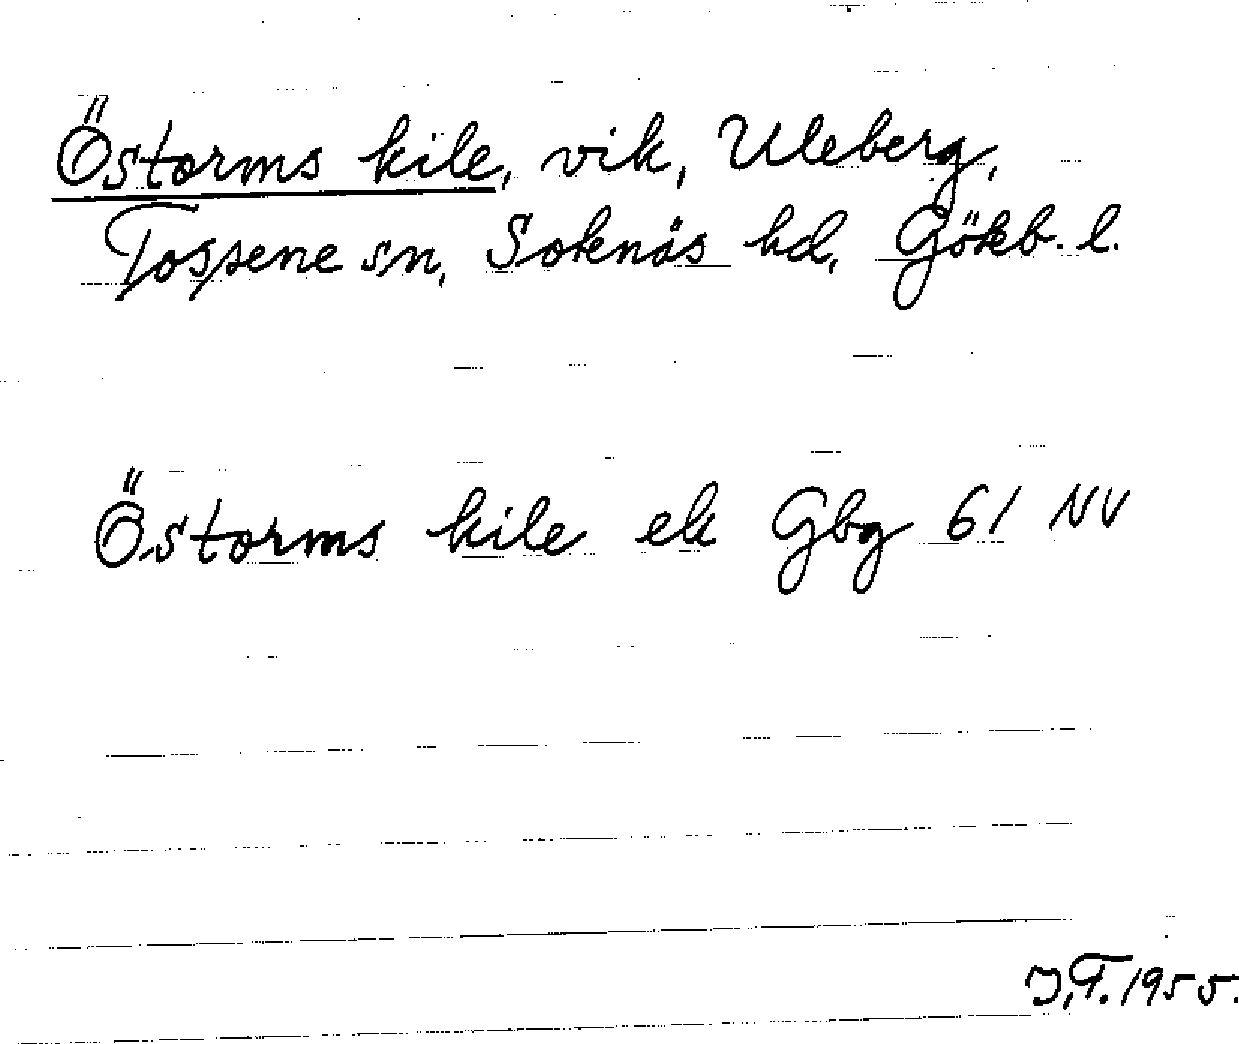 Östorms kile, vik, Uleberg,
Tossene sn, Sotenäs hd, Göteb. l.
Östorms kile ek Gbg 61 NV
J.T. 1955.